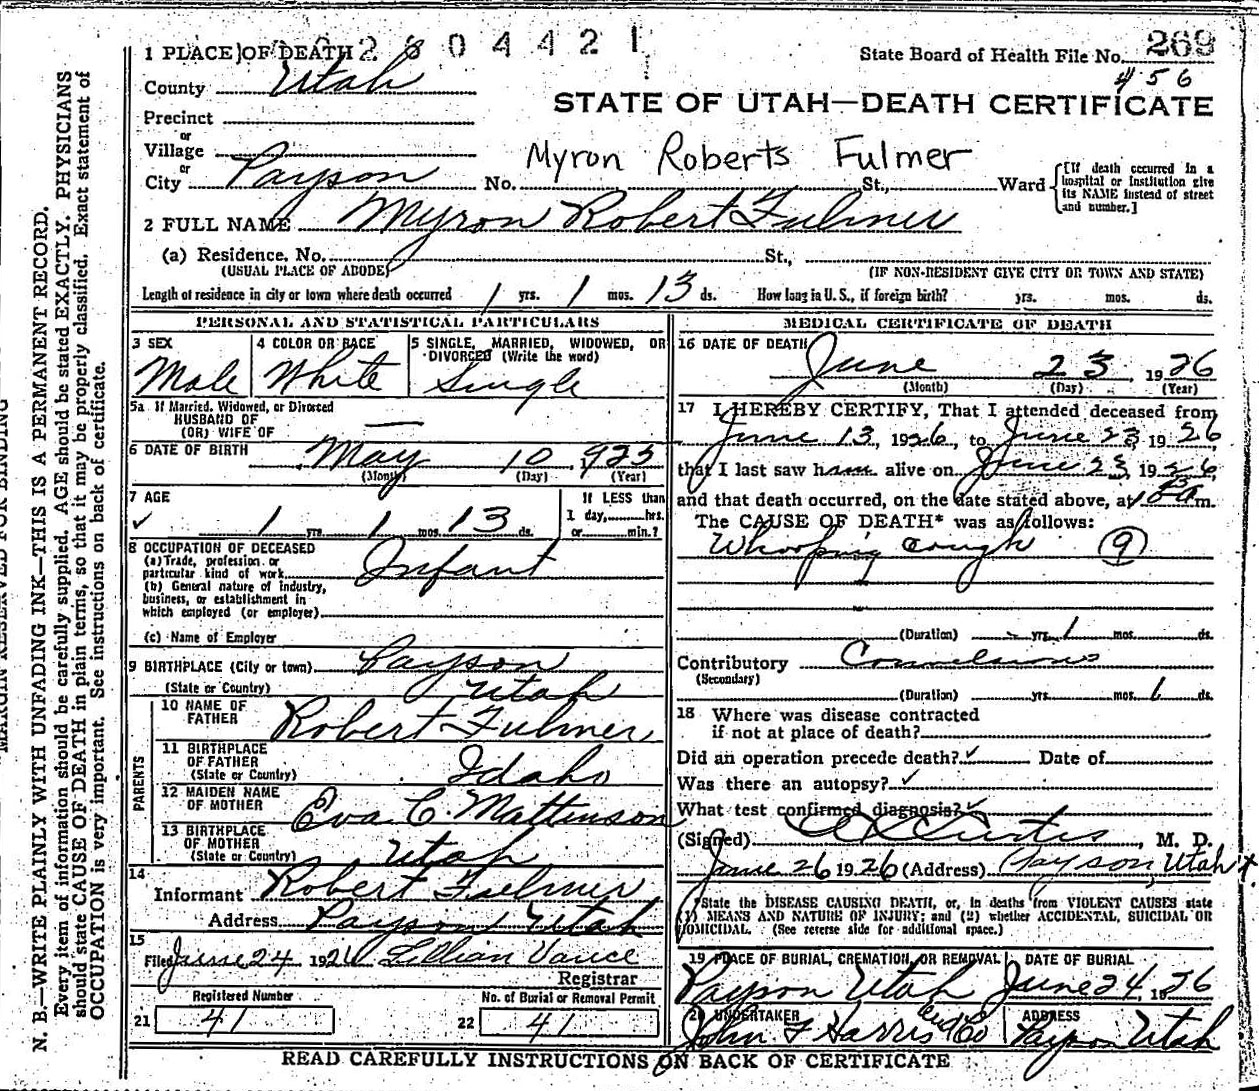 1 PLACE OF DEATH 2 8 0 4 4 2 1 State Board of Health File No. 269
County Utah 456
STATE OF UTAH—DEATH CERTIFICATE
Precinct
or
Village
or
City Payson No. St., Ward
Myron Roberts Fulmer
[If death occurred in a
hospital or institution give
its NAME instead of street
and number.]
2 FULL NAME Myron Robert Fulmer
(a) Residence. No. St.,
(USUAL PLACE OF ABODE) (IF NON-RESIDENT GIVE CITY OR TOWN AND STATE)
Length of residence in city or town where death occurred 1 yrs. 1 mos. 13 ds. How long in U. S., if foreign birth? yrs. mos. ds.
PERSONAL AND STATISTICAL PARTICULARS
3 SEX 4 COLOR OR RACE 5 SINGLE, MARRIED, WIDOWED, OR
DIVORCED (Write the word)
Male White Single
5a If Married, Widowed, or Divorced
HUSBAND OF
(OR) WIFE OF —
6 DATE OF BIRTH May 10 1925
(Month) (Day) (Year)
7 AGE If LESS than
1 day, hrs.
1 yrs. 1 mos. 13 ds. or min.?
8 OCCUPATION OF DECEASED
(a) Trade, profession, or
particular kind of work Infant
(b) General nature of industry,
business, or establishment in
which employed (or employer)
(c) Name of Employer
9 BIRTHPLACE (City or town) Payson
(State or Country) Utah
PARENTS
10 NAME OF
FATHER Robert Fulmer
11 BIRTHPLACE
OF FATHER
(State or Country) Idaho
12 MAIDEN NAME
OF MOTHER Eva C. Mattinson
13 BIRTHPLACE
OF MOTHER
(State or Country) Utah
14
Informant Robert Fulmer
Address Payson Utah
15
Filed June 24 1926 Lillian Vance
Registrar
Registered Number No. of Burial or Removal Permit
21 41 22 41
MEDICAL CERTIFICATE OF DEATH
16 DATE OF DEATH June 23 1926
(Month) (Day) (Year)
17 I HEREBY CERTIFY, That I attended deceased from
June 13, 1926, to June 23 1926
that I last saw him alive on June 23, 1926,
and that death occurred, on the date stated above, at m.
The CAUSE OF DEATH* was as follows:
Whooping cough (9)
(Duration) - yrs. 1 mos. ds.
Contributory Convulsions
(Secondary)
(Duration) yrs. mos. 1 ds.
18 Where was disease contracted
if not at place of death?
Did an operation precede death? ✓ Date of
Was there an autopsy? ✓
What test confirmed diagnosis? ✓
(Signed) Curtis, M. D.
June 26 1926 (Address) Payson, Utah
*State the DISEASE CAUSING DEATH, or, in deaths from VIOLENT CAUSES state
(1) MEANS AND NATURE OF INJURY; and (2) whether ACCIDENTAL, SUICIDAL OR
HOMICIDAL. (See reverse side for additional space.)
19 PLACE OF BURIAL, CREMATION, OR REMOVAL DATE OF BURIAL
Payson Utah June 24, 1926
20 UNDERTAKER ADDRESS
John F Harris and Co Payson Utah
READ CAREFULLY INSTRUCTIONS ON BACK OF CERTIFICATE
MARGIN RESERVED FOR BINDING
N. B.—WRITE PLAINLY WITH UNFADING INK—THIS IS A PERMANENT RECORD.
Every item of information should be carefully supplied. AGE should be stated EXACTLY. PHYSICIANS
should state CAUSE OF DEATH in plain terms, so that it may be properly classified. Exact statement of
OCCUPATION is very important. See instructions on back of certificate.